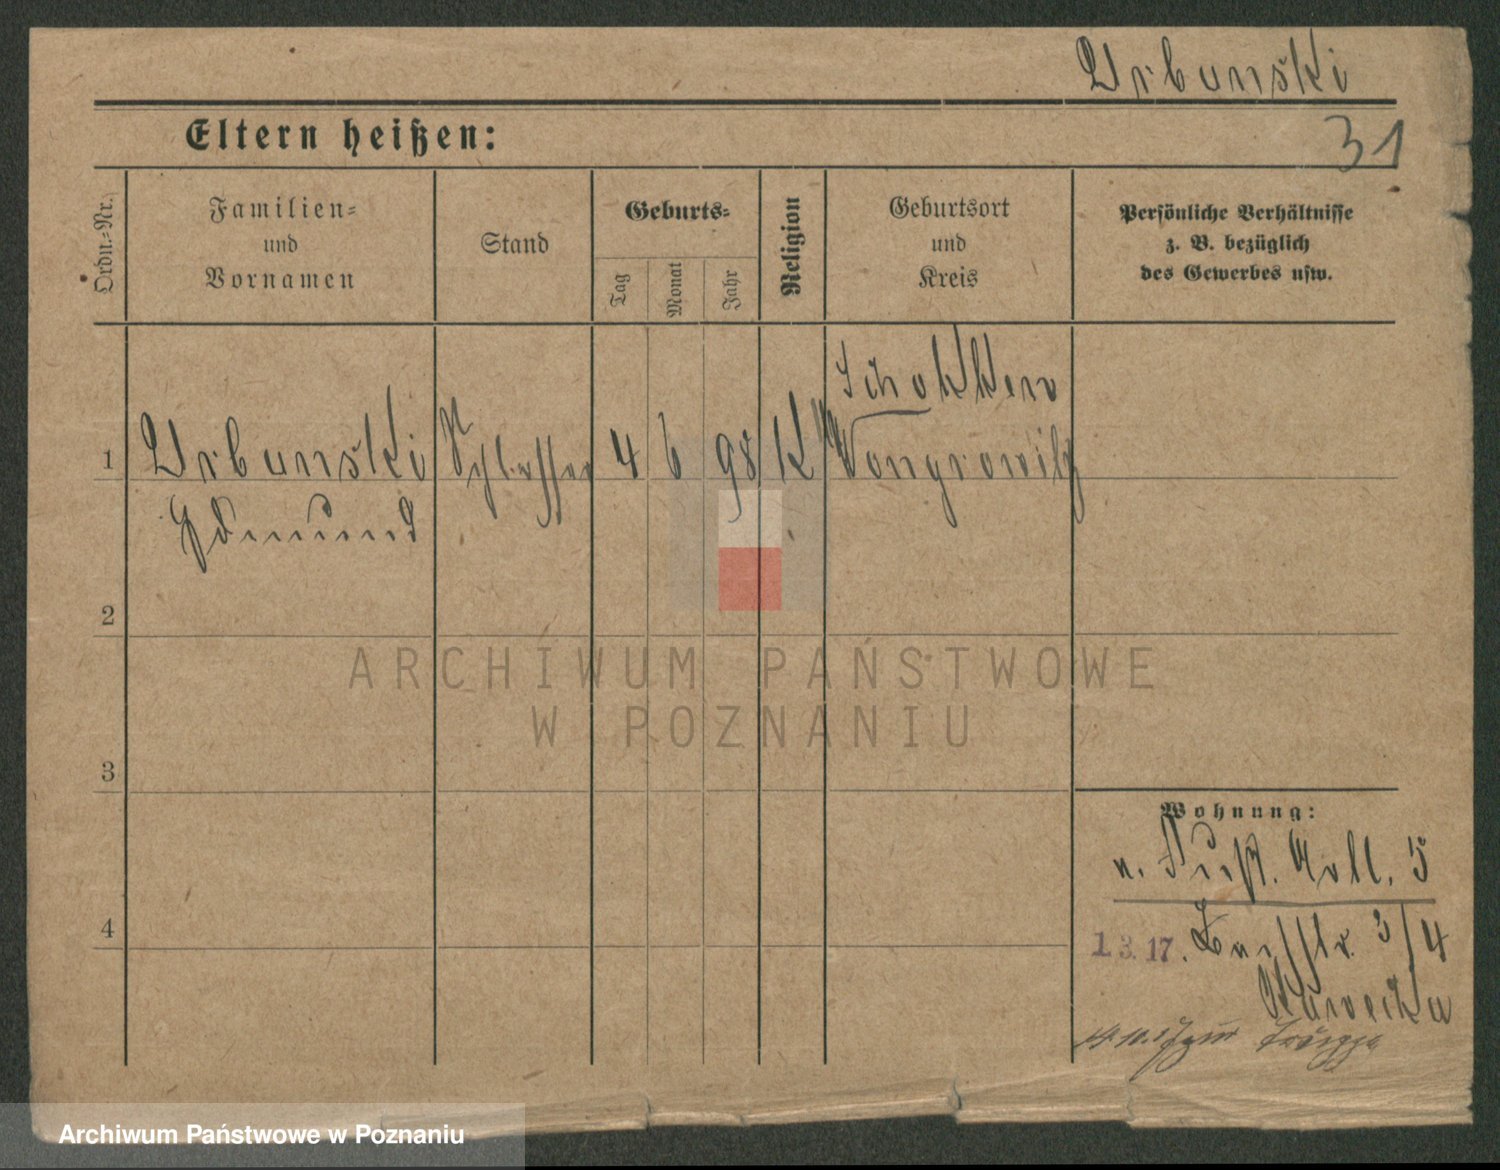 Urbanski
31
Eltern heißen:
Ordn.-Nr.
Familien-
und
Vornamen
Stand
Geburts-
Tag
Monat
Jahr
Religion
Geburtsort
und
Kreis
Persönliche Verhältnisse
z. B. bezüglich
des Gewerbes usw.
1
Urbanski
Edmund
Schlosser
4
6
98
K
Schokken
Wongrowitz
2
3
4
Wohnung:
5
1. 3. 17.
3/4
ARCHIWUM PAŃSTWOWE
W POZNANIU
Archiwum Państwowe w Poznaniu